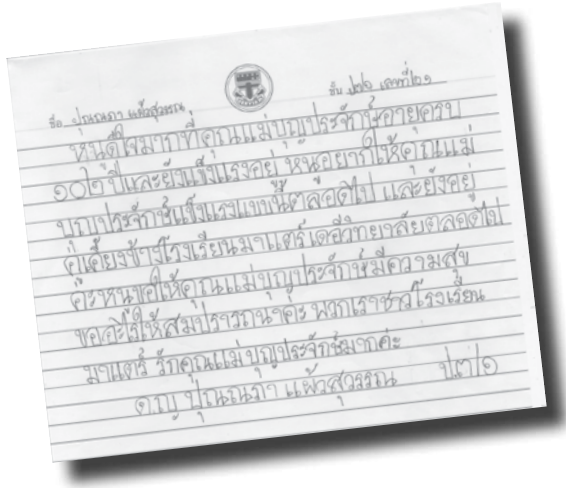 ชื่อ ปุณณภา แผ้วสุวรรณ ชั้น ป.๒/๖ เลขที่ ๒๑
หนูดีใจมากที่คุณแม่บุญประจักษ์อายุครบ
๑๐๒ ปีและยังแข็งแรงอยู่ หนูอยากให้คุณแม่
บุญประจักษ์แข็งแรงแบบนี้ตลอดไป และยังอยู่
คู่เคียงข้างโรงเรียนมาแตร์เดอีวิทยาลัยตลอดไป
ค่ะหนูขอให้คุณแม่บุญประจักษ์มีความสุข
ขออะไรให้สมปรารถนาค่ะ พวกเราชาวโรงเรียน
มาแตร์ รักคุณแม่บุญประจักษ์มากค่ะ
ด.ญ ปุณณภา แผ้วสุวรรณ